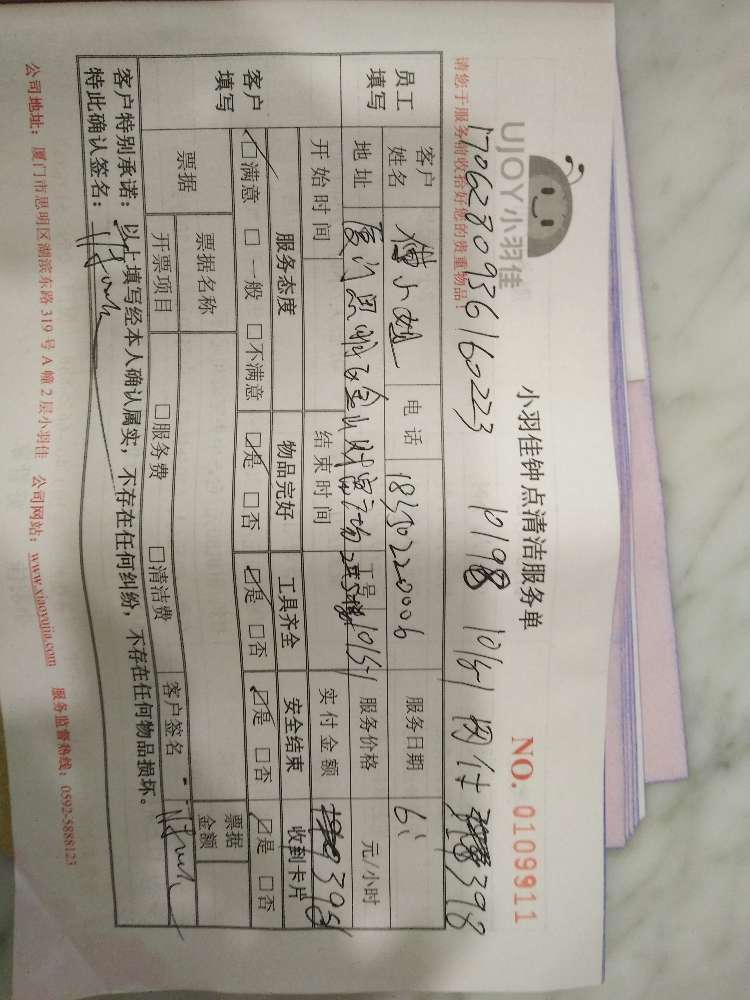 UJOY小羽佳
小羽佳钟点清洁服务单
NO. 0109911
请您于服务前收拾好您的贵重物品!
1706280936160223 10198 10151 网付 398
员工填写
客户姓名 小姐 电话 服务日期
地址 厦门思明 财富 服务价格 元/小时
开始时间 结束时间 工号 10151 实付金额 398
客户填写
服务态度 物品完好 工具齐全 安全结束 收到卡片
☑满意 □一般 □不满意 ☑是 □否 ☑是 □否 ☑是 □否 ☑是 □否
票据 票据名称 票据金额
开票项目 □服务费 □清洁费 客户签名
客户特别承诺:以上填写经本人确认属实,不存在任何纠纷,不存在任何物品损坏。
特此确认签名:
公司地址:厦门市思明区湖滨东路 319 号 A 幢 2 层小羽佳 公司网站:www.xiaoyujia.com 服务监督热线:0592-5888123